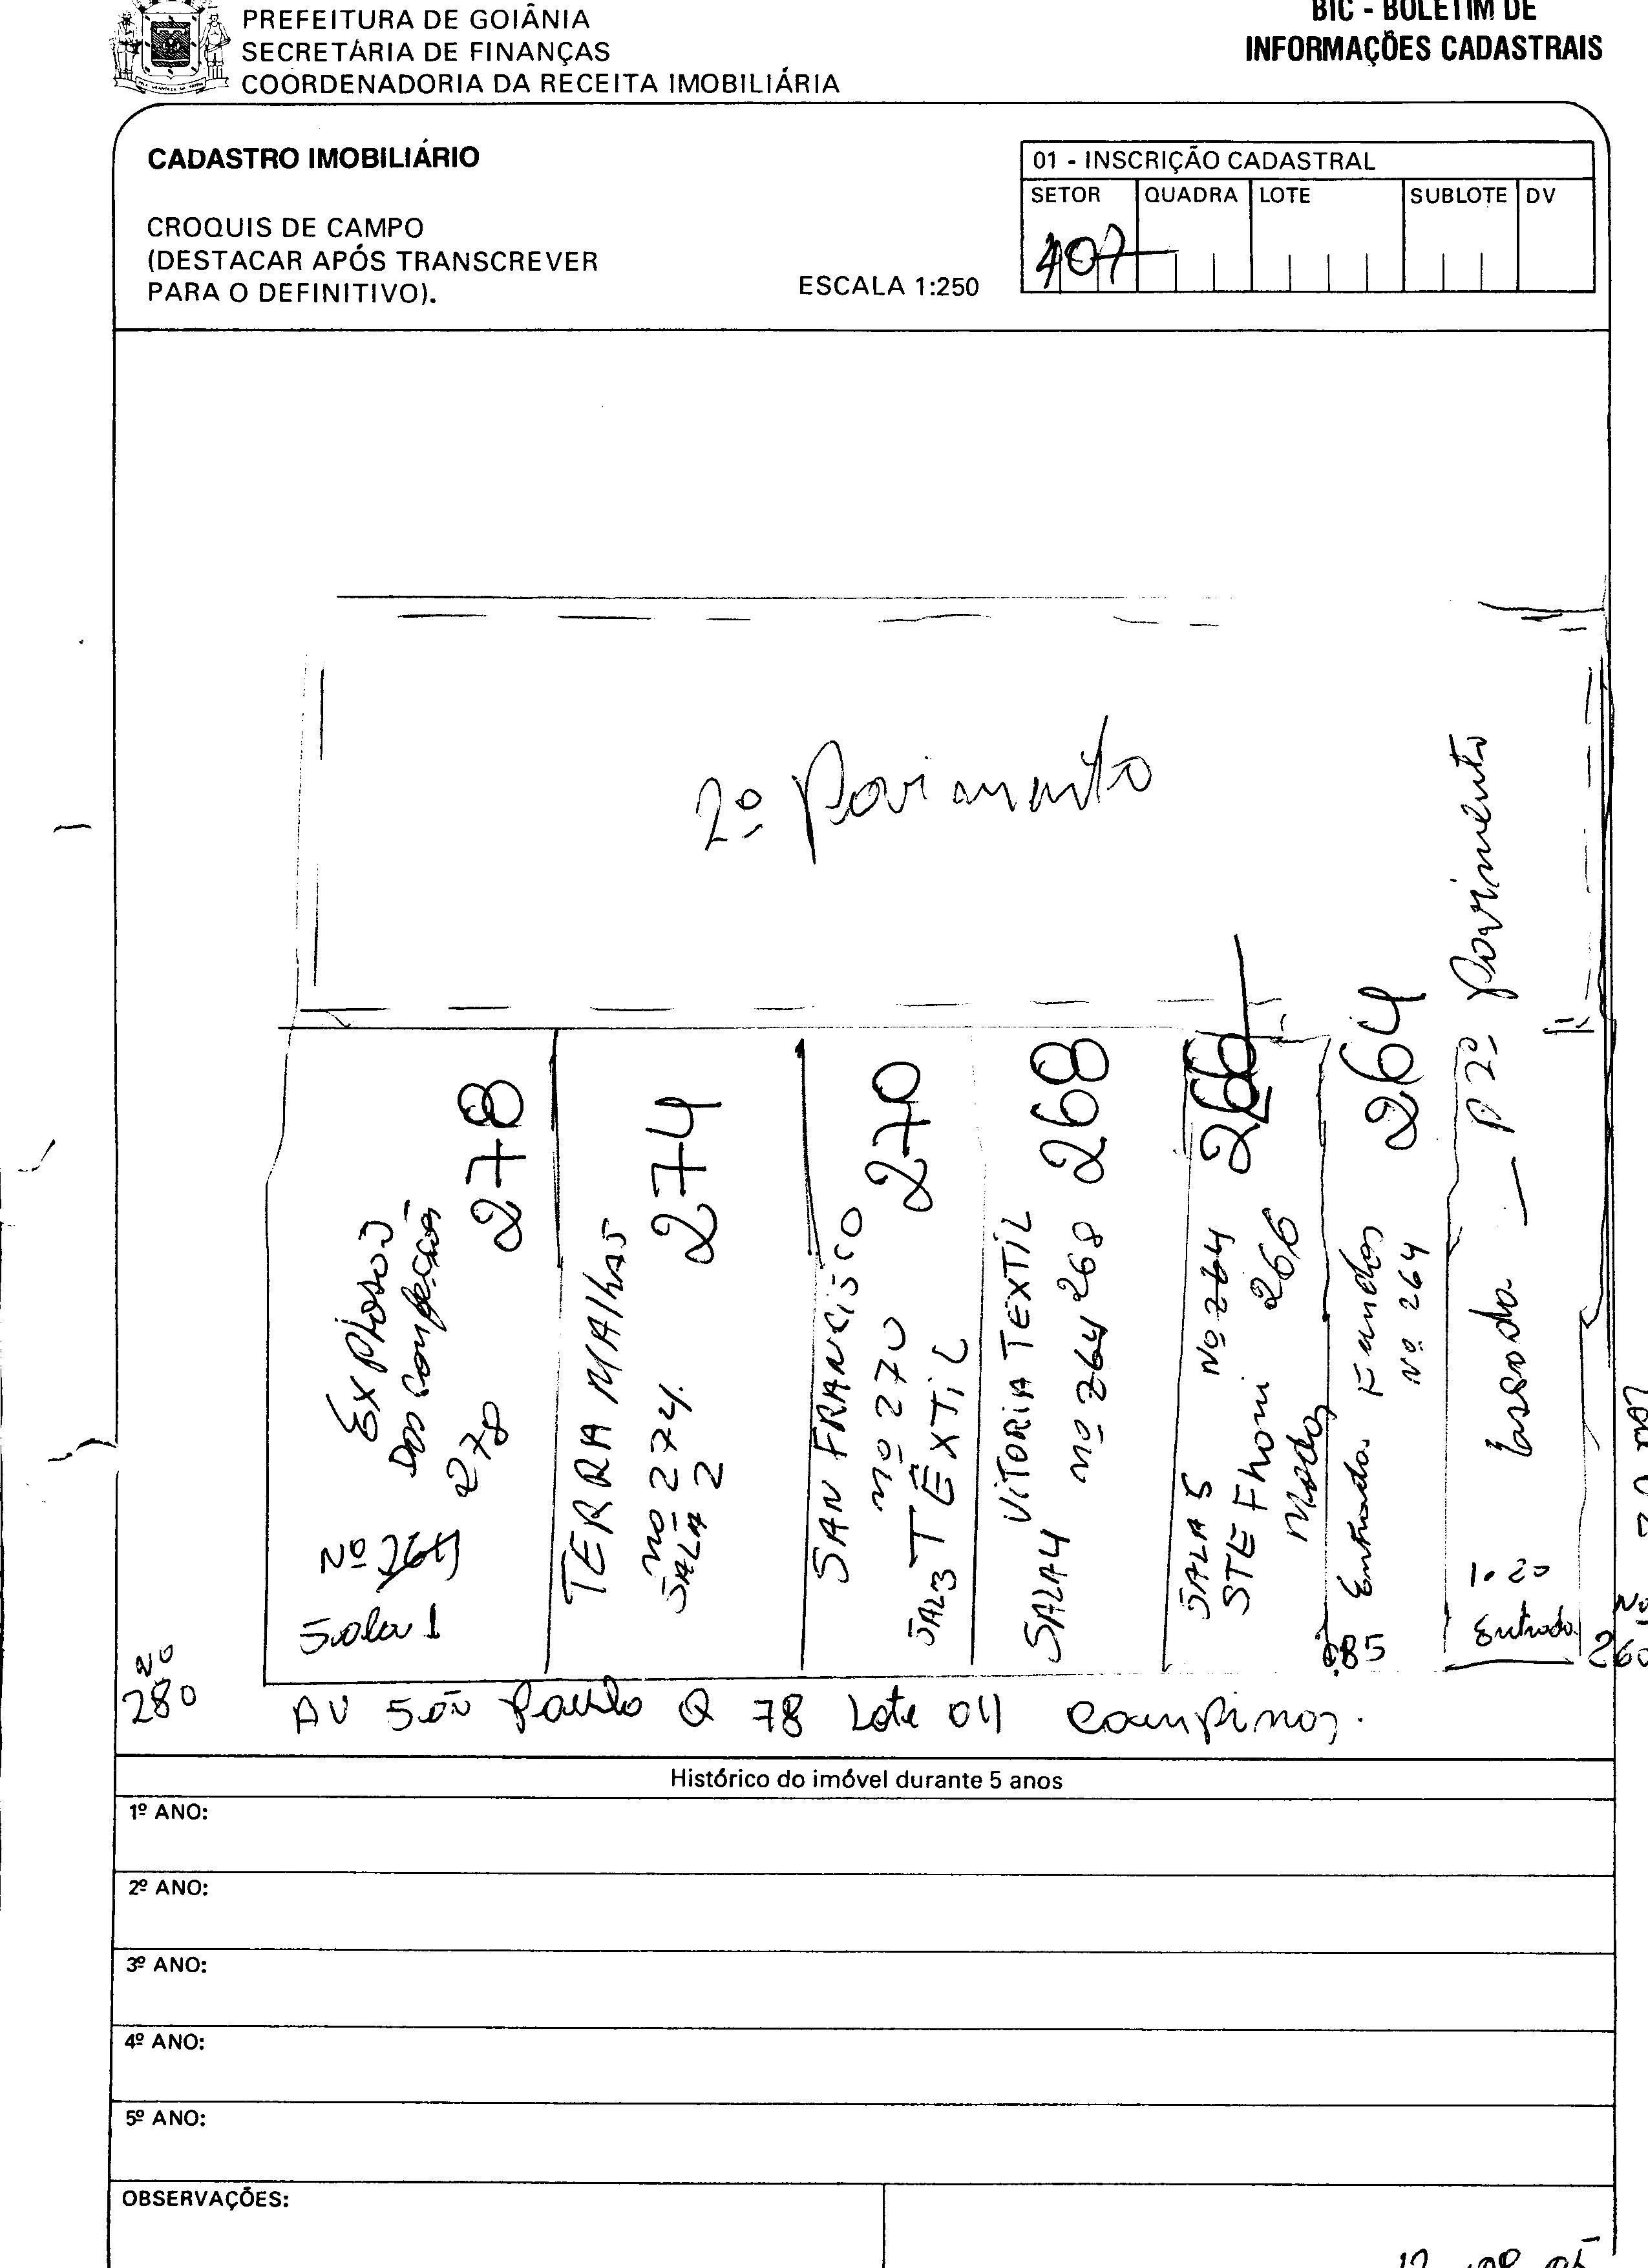 PREFEITURA DE GOIÂNIA
SECRETÁRIA DE FINANÇAS
COORDENADORIA DA RECEITA IMOBILIÁRIA
BIC - BOLETIM DE
INFORMAÇÕES CADASTRAIS
CADASTRO IMOBILIÁRIO
CROQUIS DE CAMPO
(DESTACAR APÓS TRANSCREVER
PARA O DEFINITIVO).
ESCALA 1:250
01 - INSCRIÇÃO CADASTRAL
SETOR QUADRA LOTE SUBLOTE DV
407
2º Pavimento
Dos Confecções
278
278
Nº 264
Sala 1
TERRA MAlhas
274
nº 274
SALA 2
SAN FRANCISCO
270
nº 270
SAL3 TÊXTIL
VITORIA TEXTIL
SALA 4
nº 264 268 268
SALA 5 Nº 264 266
STE Fhani 266
Modas
Entrada Fundos 264
Nº 264
.85
Escada — P 2º Pavimento
1.20
Entrada
Nº
260
Nº
280
AV São Paulo Q 78 Lote 011 Campinas.
Histórico do imóvel durante 5 anos
1º ANO:
2º ANO:
3º ANO:
4º ANO:
5º ANO:
OBSERVAÇÕES: